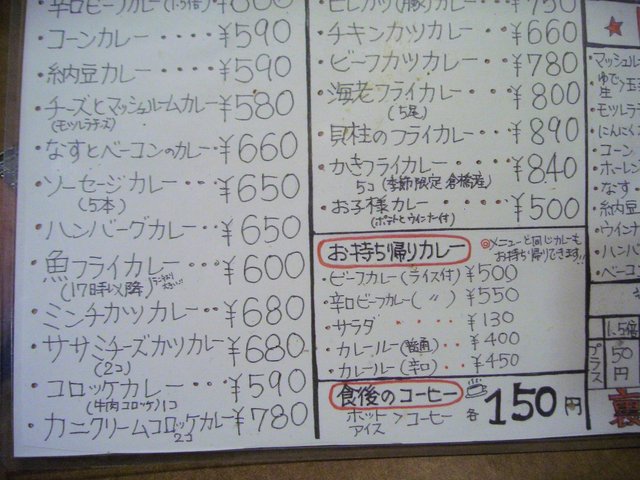 ・辛口ビーフカレー(1.5倍)¥800
・コーンカレー・・・¥590
・納豆カレー・・・¥590
・チーズとマッシュルームカレー¥580
(モッツレラチーズ)
・なすとベーコンのカレー・¥660
・ソーセージカレー・・¥650
(5本)
・ハンバーグカレー・・¥650
・魚フライカレー・・・¥600
(17時以降)
・ミンチカツカレー・・¥680
・ササミチーズカツカレー¥680
(2コ)
・コロッケカレー・・・¥590
(牛肉コロッケ)1コ
・カニクリームコロッケカレー¥780
2コ
・ヒレカツ(豚)カレー・¥750
・チキンカツカレー・・¥660
・ビーフカツカレー・・¥780
・海老フライカレー・・¥800
(5尾)
・貝柱のフライカレー・¥890
・かきフライカレー・・・・¥840
5コ(季節限定 倉橋産)
・お子様カレー・・・¥500
(ポテトとウインナー付)
お持ち帰りカレー
◎メニューと同じカレーも
お持ち帰りできます!!
・ビーフカレー(ライス付)¥500
・辛口ビーフカレー(〃)¥550
・サラダ・・・・¥130
・カレールー(普通)・・¥400
・カレールー(辛口)・・¥450
食後のコーヒー
ホット
アイス
>コーヒー 各150円
★
・マッシュル
ゆで玉
生
・モツレラ
・にんにく
・コーン
・ホーレン
・なす
・納豆
・ウインナ
・ハンバ
・ベーコ
1.5倍
プラス
50円
裏